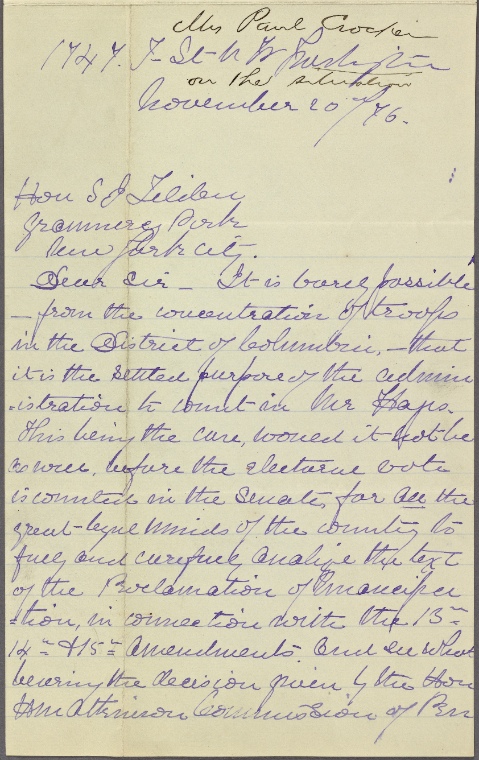 Mrs Paul Crocker
1747. F- St- N W Washington
on the situation
November 20th/76.
Hon S J Tilden
Grammercy Park
New York City.
Dear Sir - It is barely possible
- from the concentration of troops
in the District of Columbia, - that
it is the settled purpose of the admin
istration to count in Mr Hays.
This being the case, would it not be
as well, before the electoral vote
is counted in the Senate, for all the
great legal minds of the country to
fully and carefully analize the text
of the Proclamation of Emancipa
-tion, in connection with the 13th
14th & 15th Amendments. and see what
bearing the decision given by the Hon
Atkinson Commission of Pen